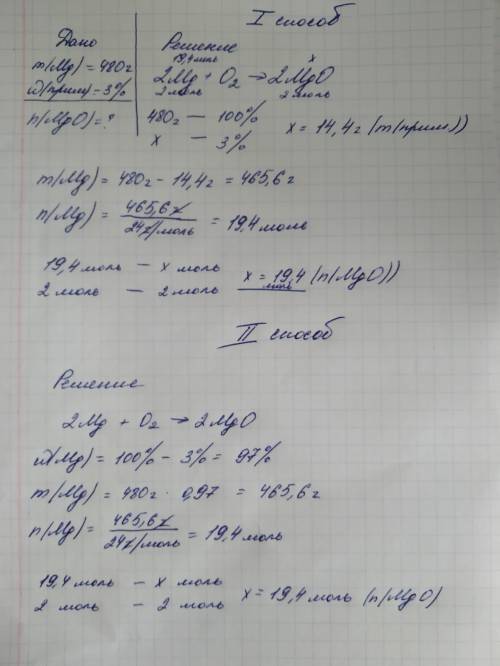 I способ
Дано
m(Mg) = 480г
ω(прим) = 3%
n(MgO) = ?
Решение
19,4 моль x
2Mg + O₂ → 2MgO
2 моль 2 моль
480г — 100%
x — 3%
x = 14,4г (m(прим))
m(Mg) = 480г - 14,4г = 465,6г
n(Mg) = 465,6г / 24г/моль = 19,4 моль
19,4 моль — x моль
2 моль — 2 моль
x = 19,4 моль (n(MgO))
II способ
Решение
2Mg + O₂ → 2MgO
ω(Mg) = 100% - 3% = 97%
m(Mg) = 480г · 0,97 = 465,6г
n(Mg) = 465,6г / 24г/моль = 19,4 моль
19,4 моль — x моль
2 моль — 2 моль
x = 19,4 моль (n(MgO)